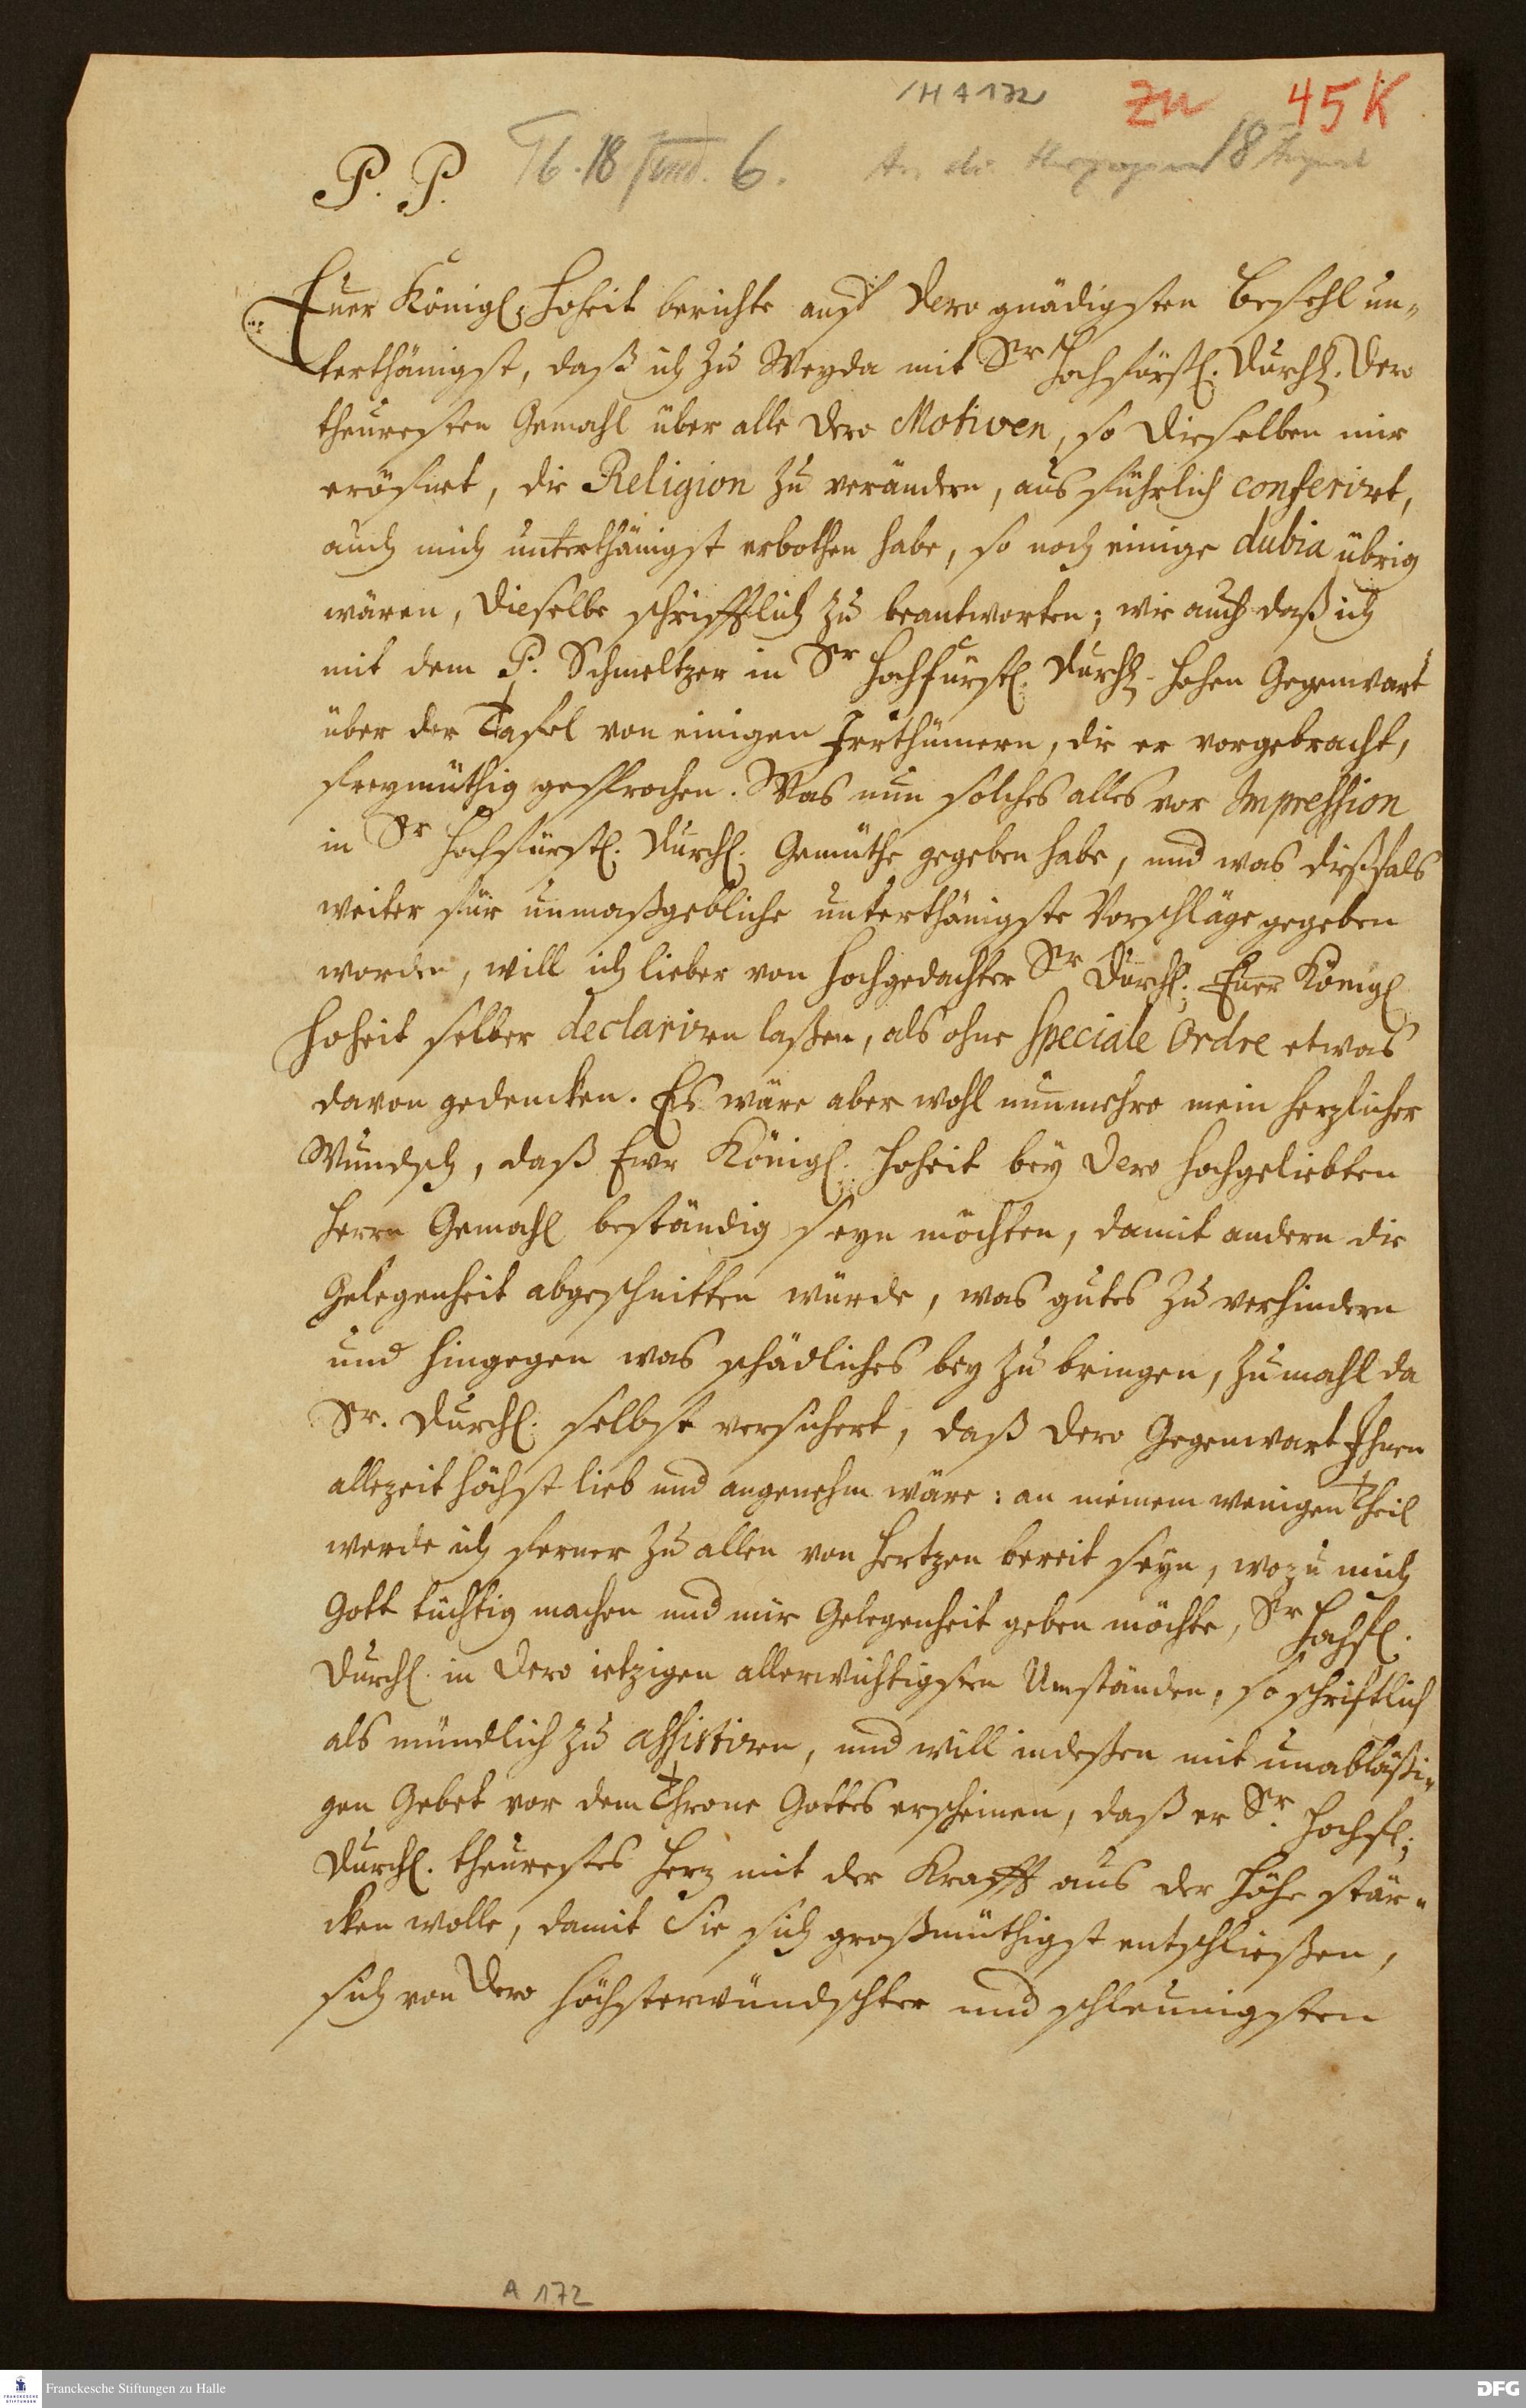 /H A 172
zu 45 K
P. P.
6.
An die Herzogin 18 August
Euer Königl. Hoheit berichte auf Dero gnädigsten Befehl un-
terthänigst, daß ich zu Weyda mit Sr Hochfürstl. Durchl. Dero
theuresten Gemahl über alle Dero Motiven, so dieselben mir
eröfnet, die Religion zu verändern, ausführlich conferirt,
auch mich unterthänigst erbothen habe, so noch einige dubia übrig
wären, dieselbe schrifftlich zu beantworten; wie auch daß ich
mit dem P. Schmeltzer in Sr Hochfürstl. Durchl. hohen Gegenwart
über der Tafel von einigen Irrthümern, die er vorgebracht,
freymüthig gesprochen. Was nun solches alles vor Impression
in Sr Hochfürstl. Durchl. Gemüthe gegeben habe, und was dißfals
weiter für unmaßgebliche unterthänigste Vorschläge gegeben
worden, will ich lieber von hochgedachter Sr Durchl. Euer Königl.
Hoheit selber declariren laßen, als ohne speciale Ordre etwas
davon gedencken. Es wäre aber wohl nunmehro mein herzlicher
Wundsch, daß Ewr Königl. Hoheit bey Dero hochgeliebten
Herrn Gemahl beständig seyn möchten, damit andern die
Gelegenheit abgeschnitten würde, was gutes zu verhindern
und hingegen was schädliches bey zu bringen, zumahl da
Sr. Durchl. selbst versichert, daß Dero Gegenwart Ihnen
allezeit höchst lieb und angenehm wäre: an meinem wenigen Theil
werde ich ferner zu allen von Hertzen bereit seyn, wozu mich
Gott tüchtig machen und mir Gelegenheit geben möchte, Sr Hochfl.
Durchl. in Dero ietzigen allerwichtigsten Umständen, so schriftlich
als mündlich zu assistiren, und will indeßen mit unabläßi-
gen Gebet vor dem Throne Gottes erscheinen, daß er Sr. Hochfl.
Durchl. theurestes Herz mit der Krafft aus der Höhe stär-
cken wolle, damit Sie sich großmüthigst entschließen,
sich von Dero höchsterwündschter und schleunigsten
A 172
Franckesche Stiftungen zu Halle
DFG